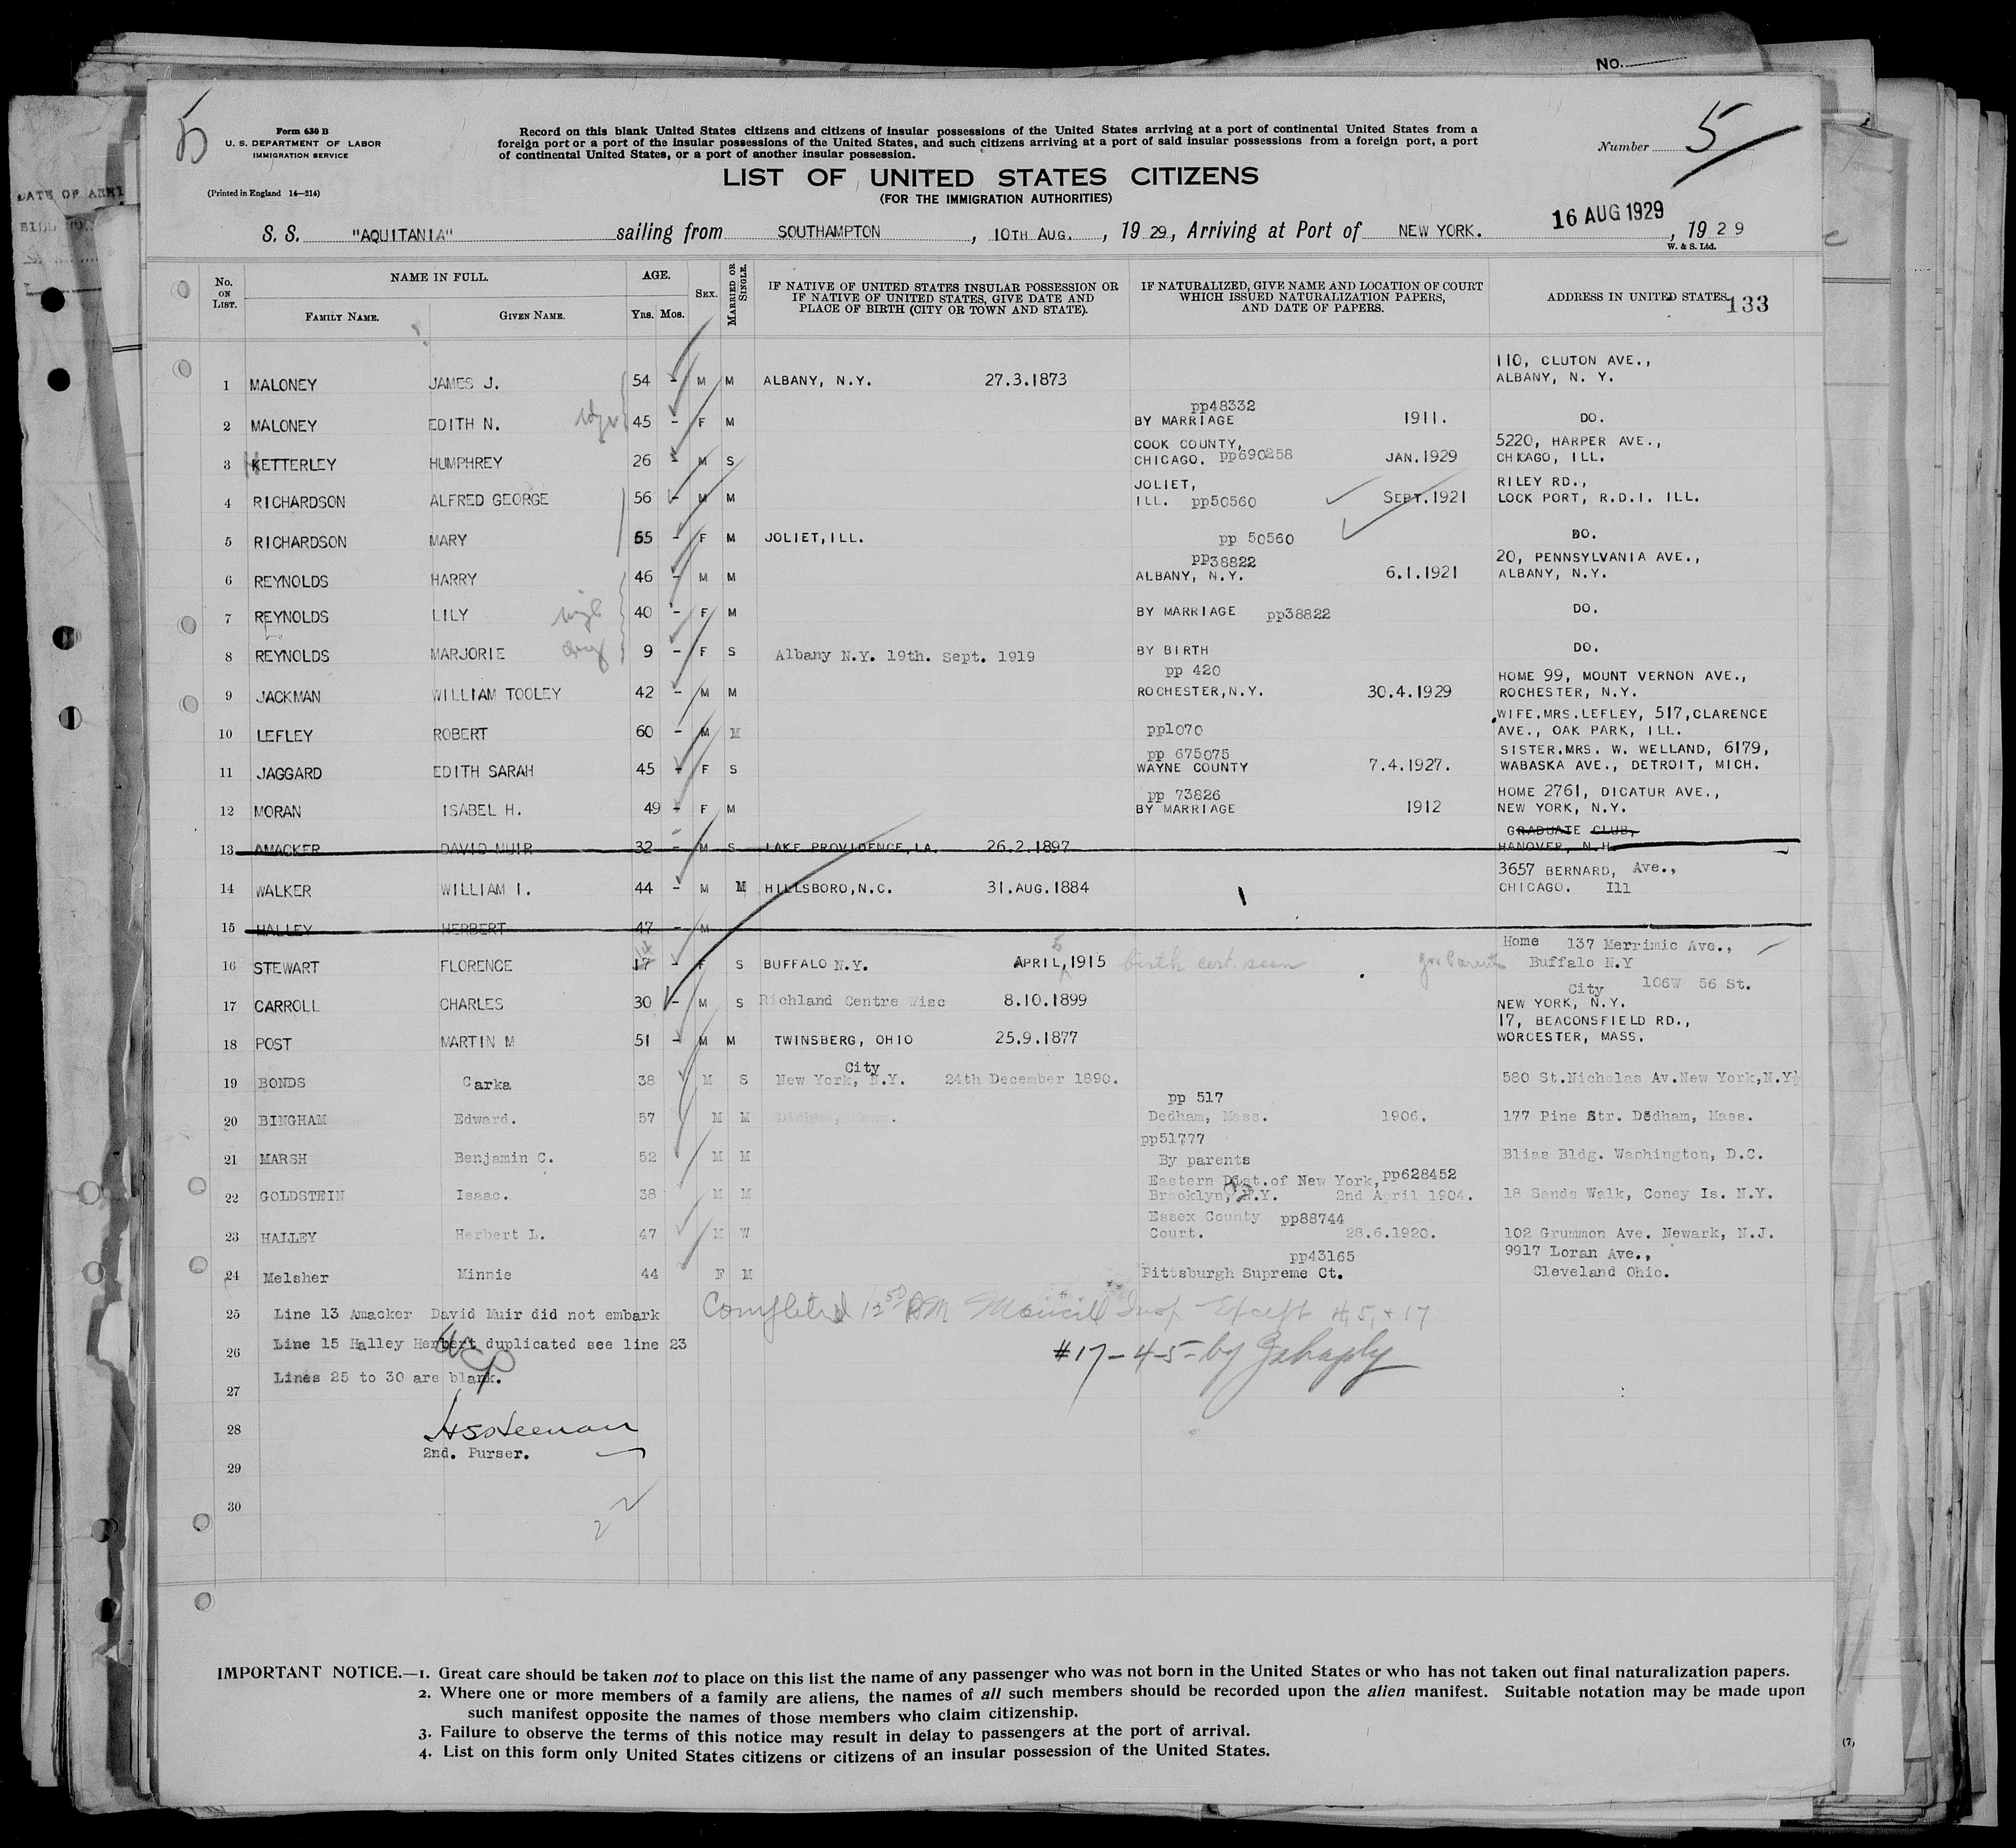 No.
5
Form 630 B
U. S. DEPARTMENT OF LABOR
IMMIGRATION SERVICE
(Printed in England 14—214)
Record on this blank United States citizens and citizens of insular possessions of the United States arriving at a port of continental United States from a
foreign port or a port of the insular possessions of the United States, and such citizens arriving at a port of said insular possessions from a foreign port, a port
of continental United States, or a port of another insular possession.
Number 5
LIST OF UNITED STATES CITIZENS
(FOR THE IMMIGRATION AUTHORITIES)
S. S. "AQUITANIA" sailing from SOUTHAMPTON, 10TH AUG., 1929, Arriving at Port of NEW YORK. 16 AUG 1929, 1929
W. & S. Ltd.
No. ON LIST. NAME IN FULL. FAMILY NAME. GIVEN NAME. AGE. Yrs. Mos. SEX. MARRIED OR SINGLE. IF NATIVE OF UNITED STATES INSULAR POSSESSION OR IF NATIVE OF UNITED STATES, GIVE DATE AND PLACE OF BIRTH (CITY OR TOWN AND STATE). IF NATURALIZED, GIVE NAME AND LOCATION OF COURT WHICH ISSUED NATURALIZATION PAPERS, AND DATE OF PAPERS. ADDRESS IN UNITED STATES. 133
110, CLUTON AVE.,
1 MALONEY JAMES J. 54 - M M ALBANY, N.Y. 27.3.1873 ALBANY, N. Y.
pp48332
2 MALONEY EDITH N. 45 - F M BY MARRIAGE 1911. DO.
COOK COUNTY, 5220, HARPER AVE.,
3 KETTERLEY HUMPHREY 26 - M S CHICAGO. pp690258 JAN.1929 CHICAGO, ILL.
JOLIET, RILEY RD.,
4 RICHARDSON ALFRED GEORGE 56 - M M ILL. pp50560 SEPT.1921 LOCK PORT, R.D.I. ILL.
5 RICHARDSON MARY 55 - F M JOLIET, ILL. pp 50560 DO.
pp38822 20, PENNSYLVANIA AVE.,
6 REYNOLDS HARRY 46 - M M ALBANY, N.Y. 6.1.1921 ALBANY, N.Y.
7 REYNOLDS LILY 40 - F M BY MARRIAGE pp38822 DO.
8 REYNOLDS MARJORIE 9 - F S Albany N.Y. 19th. Sept. 1919 BY BIRTH DO.
pp 420 HOME 99, MOUNT VERNON AVE.,
9 JACKMAN WILLIAM TOOLEY 42 - M M ROCHESTER, N.Y. 30.4.1929 ROCHESTER, N.Y.
WIFE.MRS.LEFLEY, 517, CLARENCE
10 LEFLEY ROBERT 60 - M M pp1070 AVE., OAK PARK, ILL.
pp 675075 SISTER.MRS. W. WELLAND, 6179,
11 JAGGARD EDITH SARAH 45 - F S WAYNE COUNTY 7.4.1927. WABASKA AVE., DETROIT, MICH.
pp 73826 HOME 2761, DICATUR AVE.,
12 MORAN ISABEL H. 49 - F M BY MARRIAGE 1912 NEW YORK, N.Y.
GRADUATE CLUB,
13 AMACKER DAVID MUIR 32 - M S LAKE PROVIDENCE, LA. 26.2.1897 HANOVER, N.H.
3657 BERNARD, Ave.,
14 WALKER WILLIAM I. 44 - M M HILLSBORO, N.C. 31.AUG.1884 CHICAGO. Ill
15 HALLEY HERBERT 47 - M
Home 137 Merrimic Ave.,
16 STEWART FLORENCE 17 - F S BUFFALO N.Y. APRIL, 5 1915 birth cert. seen Buffalo N.Y
City 106W 56 St.
17 CARROLL CHARLES 30 - M S Richland Centre Wisc 8.10.1899 NEW YORK, N.Y.
17, BEACONSFIELD RD.,
18 POST MARTIN M 51 - M M TWINSBERG, OHIO 25.9.1877 WORCESTER, MASS.
City
19 BONDS Carka 38 M S New York, N.Y. 24th December 1890. 580 St.Nicholas Av.New York,N.Y
pp 517
20 BINGHAM Edward. 57 M M Dedham, Mass. Dedham, Mass. 1906. 177 Pine Str. Dedham, Mass.
pp51777
21 MARSH Benjamin C. 52 M M By parents Blias Bldg. Washington, D.C.
Eastern Dist.of New York, pp628452
22 GOLDSTEIN Isaac. 38 M M Brooklyn, N.Y. 2nd April 1904. 18 Sands Walk, Coney Is. N.Y.
Essex County pp88744
23 HALLEY Herbert L. 47 M W Court. 28.6.1920. 102 Grummon Ave. Newark, N.J.
pp43165 9917 Loran Ave.,
24 Melsher Minnie 44 F M Pittsburgh Supreme Ct. Cleveland Ohio.
25 Line 13 Amacker David Muir did not embark Completed 12 50 PM Insp Except 4, 5, + 17
26 Line 15 Halley Herbert duplicated see line 23 #17-4-5- by
27 Lines 25 to 30 are blank.
28
2nd. Purser.
29
30
IMPORTANT NOTICE.—1. Great care should be taken not to place on this list the name of any passenger who was not born in the United States or who has not taken out final naturalization papers.
2. Where one or more members of a family are aliens, the names of all such members should be recorded upon the alien manifest. Suitable notation may be made upon
such manifest opposite the names of those members who claim citizenship.
3. Failure to observe the terms of this notice may result in delay to passengers at the port of arrival.
4. List on this form only United States citizens or citizens of an insular possession of the United States.
(7)